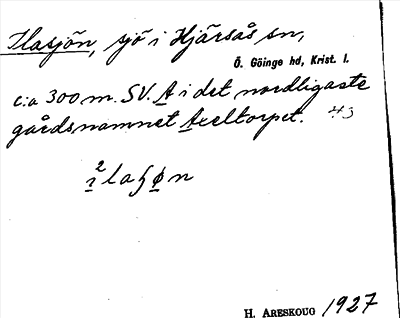 Ilasjön, sjö i Hjärsås sn,
Ö. Göinge hd, Krist. l.
c:a 300 m. SV. A i det nordligaste
gårdsnamnet Axeltorpet. 43
H. Areskoug 1927